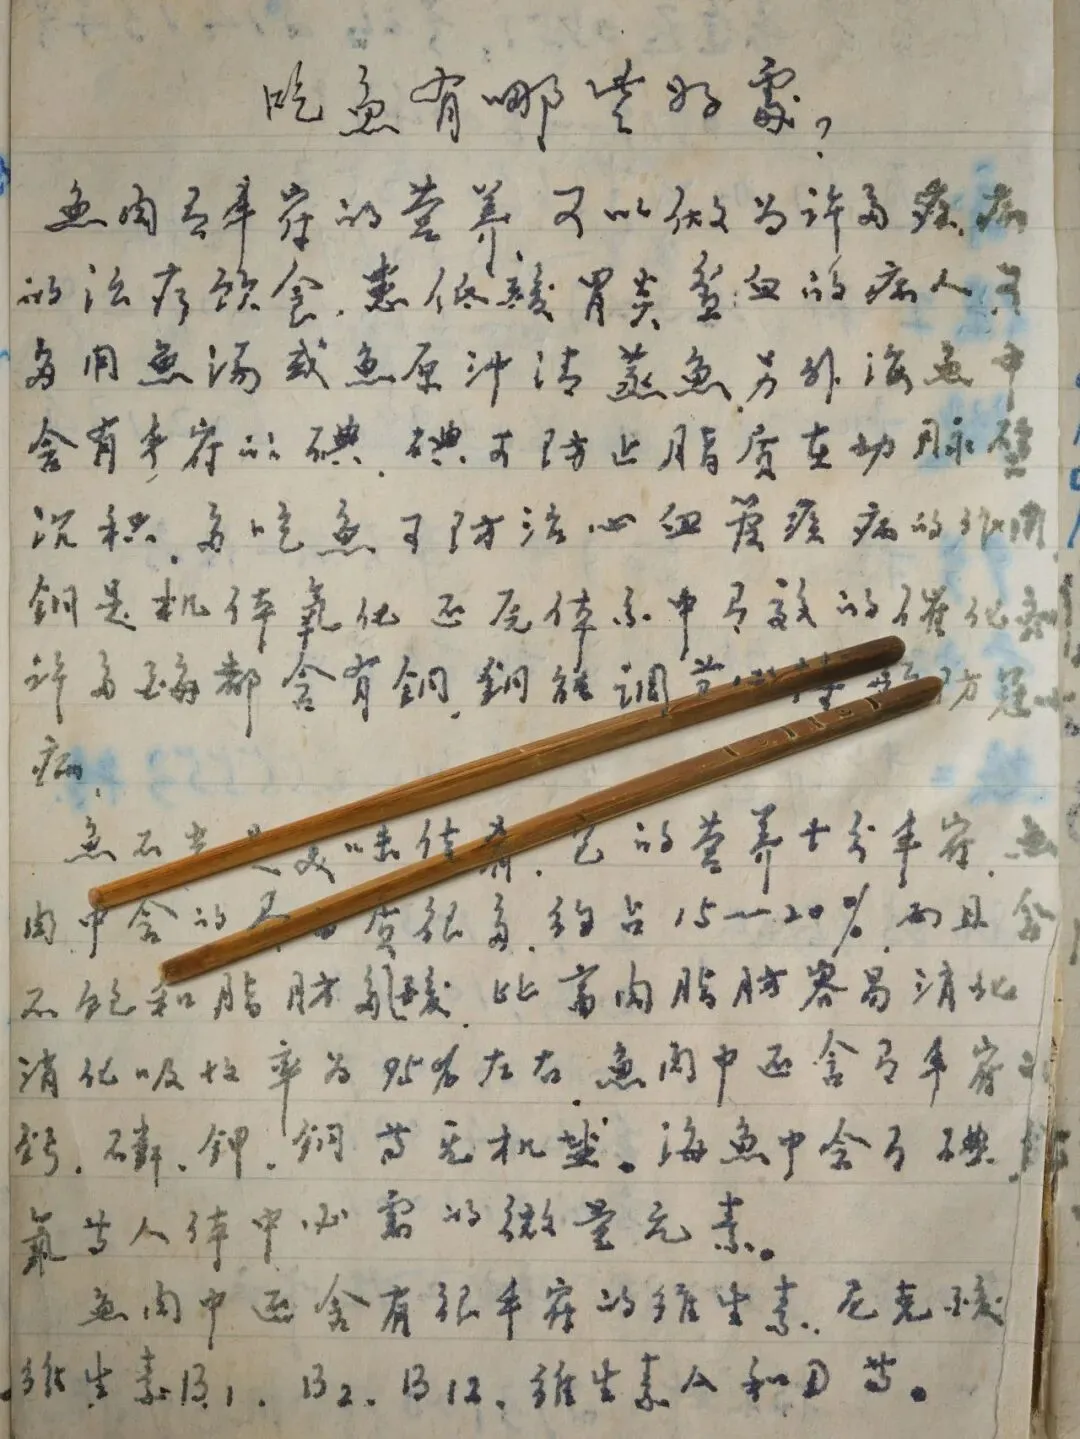 吃魚有哪些好處?
魚肉有丰富的营养,可以做为许多疾病
的治疗饮食.患低酸胃炎.贫血的病人可
多用魚汤或魚原汁清蒸魚.另外海魚中
含有丰富的碘.碘可防止脂质在动脉壁
沉积.多吃魚可防治心血管疾病的作用.
銅是机体氧化还元体系中有效的催化剂
许多酶都含有銅.銅能调节 防冠心
病.
魚不 味佳 .它的营养十分丰富.魚
肉中含的 质很多.约占15一20%.而且含
不饱和脂肪酸.比畜肉脂肪容易消化
消化吸收率为95%左右.魚肉中还含有丰富的
鈣、磷、钾、銅等无机盐。海魚中含有碘.
氟等人体中必需的微量元素。
魚肉中还含有很丰富的维生素.尼克酸
维生素B1、B2、B12、维生素A和D等。